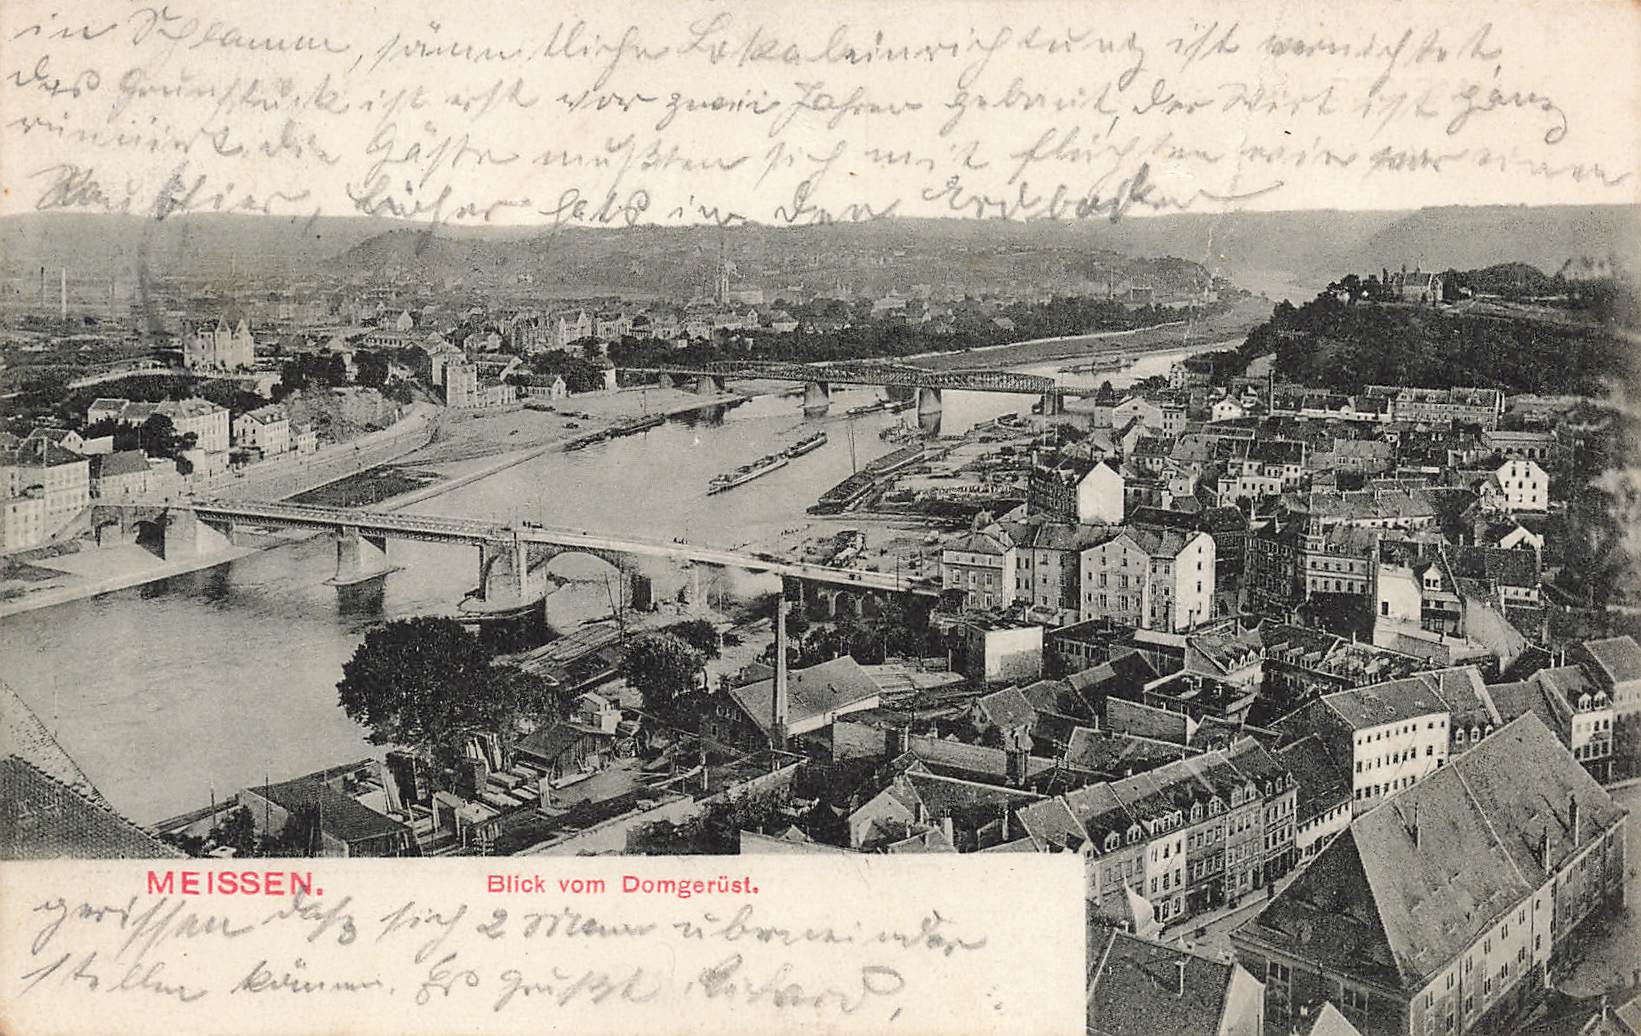 in Schlamm, sämmtliche Lokaleinrichtung ist vernichtet,
das Grunstück ist erst vor zwei Jahren gebaut, der Wirt ist ganz
ruiniert. die Gäste mußten sich mit flüchten wie war einen
hier, Löcher hats in den Erdboden
MEISSEN. Blick vom Domgerüst.
gerissen daß sich 2 Mann übereinander
stellen können. Es grüßt Richard,